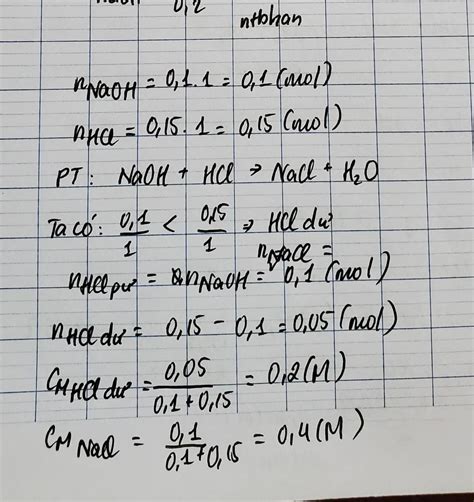 0,2
n_NaOH = 0,1.1 = 0,1 (mol)
n_HCl = 0,15.1 = 0,15 (mol)
PT: NaOH + HCl → NaCl + H₂O
Ta có: 0,1/1 < 0,15/1 ⇒ HCl dư
n_HCl pư = n_NaOH = n_NaCl = 0,1 (mol)
n_HCl dư = 0,15 - 0,1 = 0,05 (mol)
C_M HCl dư = 0,05/(0,1 + 0,15) = 0,2 (M)
C_M NaCl = 0,1/(0,1 + 0,15) = 0,4 (M)